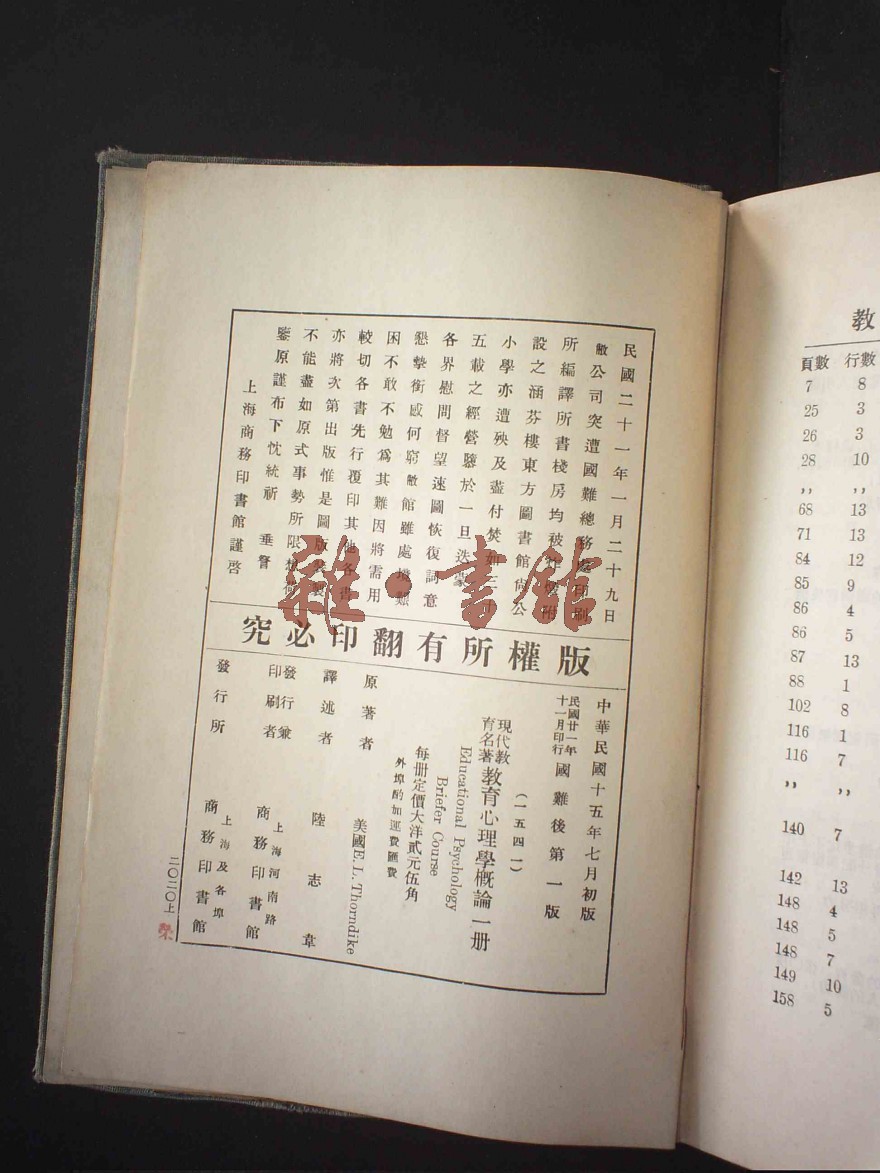 民國二十一年一月二十九日
敝公司突遭國難總務處印刷
所編譯所書棧房均被炸燬附
設之涵芬樓東方圖書館尚公
小學亦遭殃及盡付焚如三十
五載之經營隳於一旦迭蒙
各界慰問督望速圖恢復詞意
懇摯銜感何窮敝館雖處境艱
困不敢不勉爲其難因將需用
較切各書先行覆印其他各書
亦將次第出版惟是圖版裝製
不能盡如原式事勢所限想荷
鑒原謹布下忱統祈 垂詧
上海商務印書館謹啓
版權所有翻印必究
中華民國十五年七月初版
民國廿一年十一月印行 國難後第一版
(一五四一)
現代教育名著 教育心理學概論一册
Educational Psychology
Briefer Course
每册定價大洋貳元伍角
外埠酌加運費匯費
原著者 美國E. L. Thorndike
譯述者 陸志韋
發行兼印刷者 上海河南路 商務印書館
發行所 上海及各埠 商務印書館
二〇二〇上
榮
雜·書館
教
頁數 行數
7 8
25 3
26 3
28 10
,, ,,
68 13
71 13
84 12
85 9
86 4
86 5
87 13
88 1
102 8
116 1
116 7
,, ,,
140 7
142 13
148 4
148 5
148 7
149 10
158 5